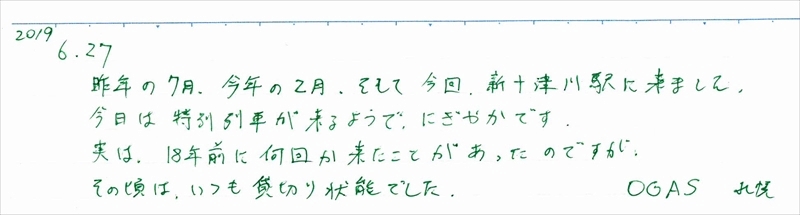 2019
6.27
昨年の7月、今年の2月、そして今回、新十津川駅に来ました。
今日は特別列車が来るようで、にぎやかです.
実は、18年前に何回か来たことがあったのですが、
その頃は、いつも貸切り状態でした.　OGAS　札幌